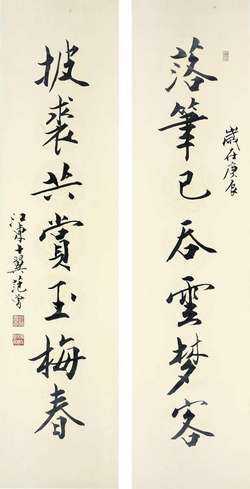 落筆已吞雲夢客
歲在庚辰
披裘共賞玉梅春
江東十翼范曾